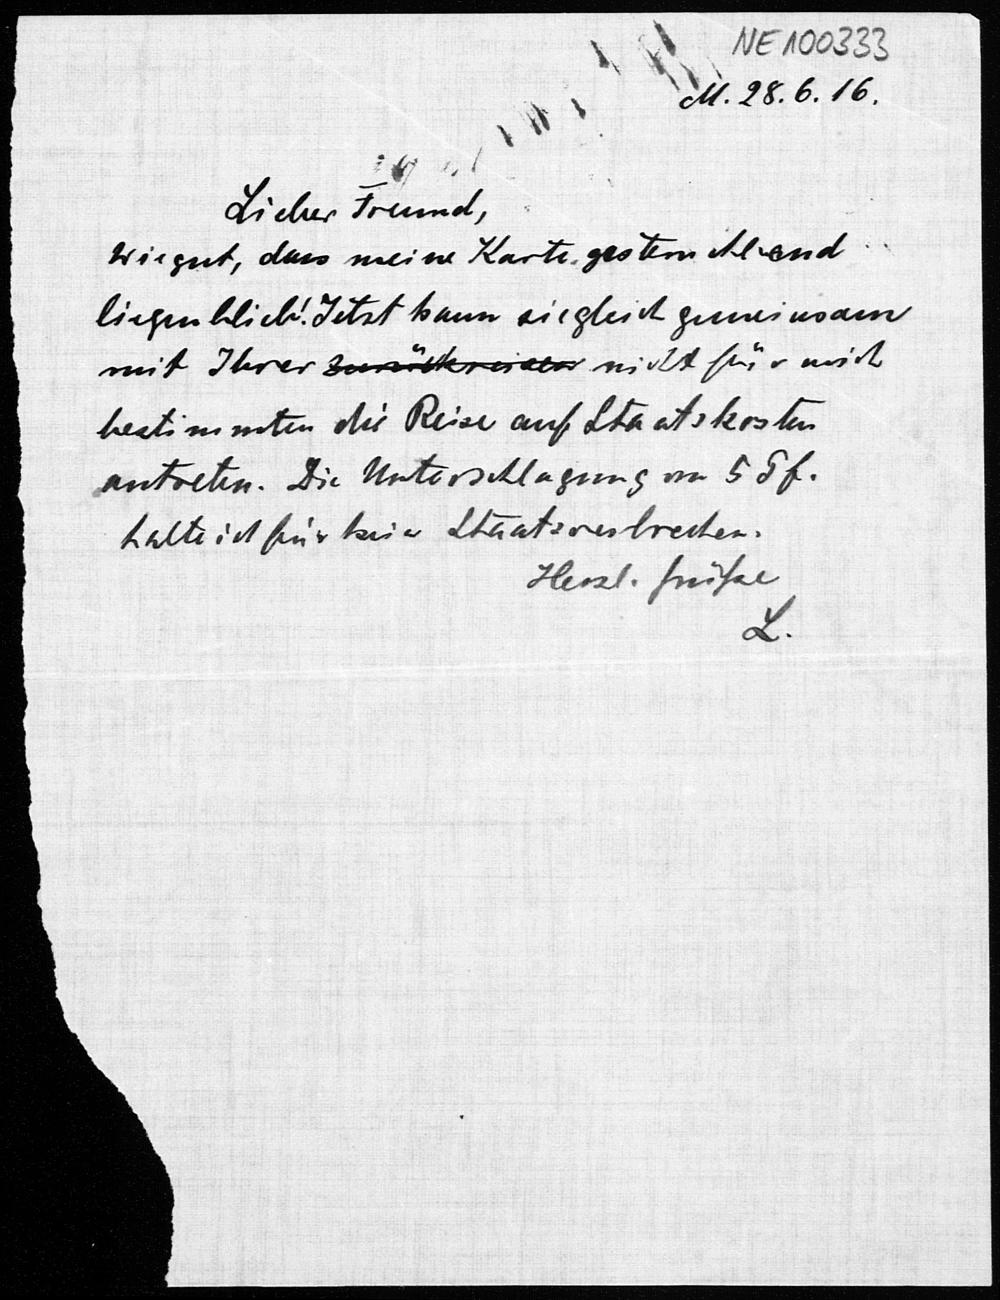 NE100333
M. 28.6.16.
Lieber Freund,
wie gut, dass meine Karte gestern Abend
liegen blieb! Jetzt kann sie gleich gemeinsam
mit Ihrer zurückreisen nicht für mich
bestimmten die Reise auf Staatskosten
antreten. Die Unterschlagung von 5 Pf.
halte ich für kein Staatsverbrechen.
Herzl. Grüsse
L.